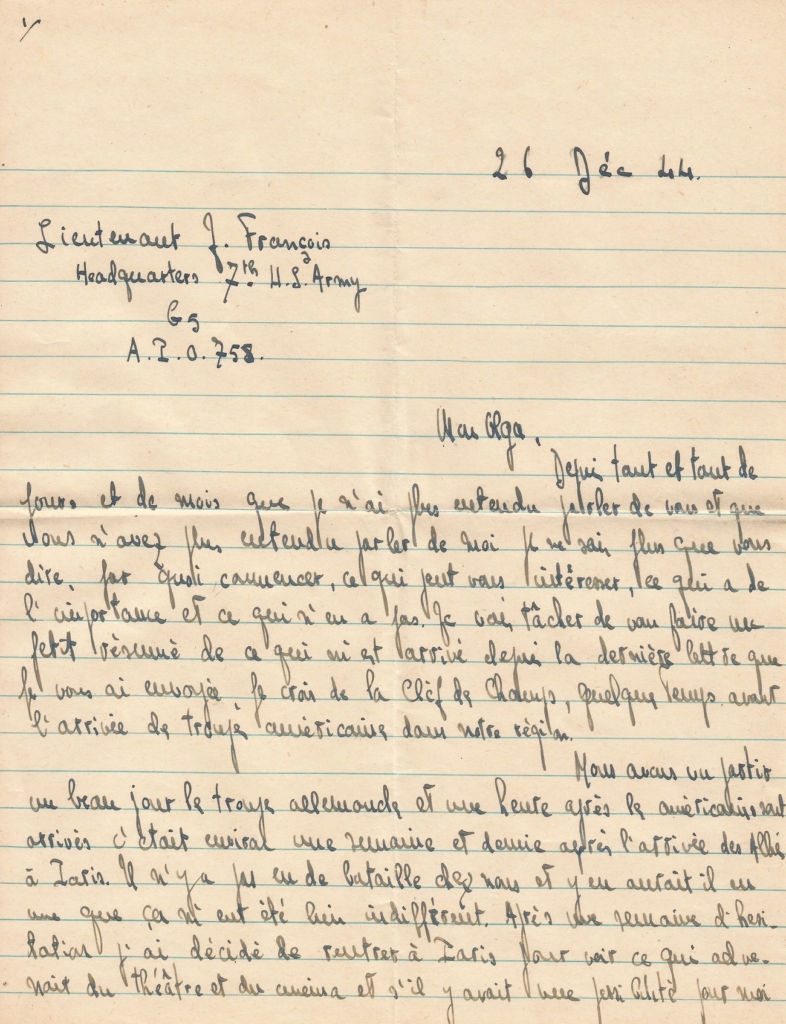 1/
26 Déc 44.
Lieutenant J. François
Headquarters 7th U.S. Army
G5
A.P.O. 758.
Mon Olga,
Depuis tant et tant de
jours et de mois que je n'ai plus entendu parler de vous et que
vous n'avez plus entendu parler de moi je ne sais plus que vous
dire, par quoi commencer, ce qui peut vous intéresser, ce qui a de
l'importance et ce qui n'en a pas. Je vais tâcher de vous faire un
petit résumé de ce qui m'est arrivé depuis la dernière lettre que
je vous ai envoyée je crois de la Clef des Champs, quelque temps avant
l'arrivée des troupes américaines dans notre région.
Nous avons vu partir
un beau jour les troupes allemandes et une heure après les américains sont
arrivés c'était environ une semaine et demie après l'arrivée des Alliés
à Paris. Il n'y a pas eu de bataille chez nous et y en aurait il eu
une que ça m'eut été bien indifférent. Après une semaine d'hesi-
tation j'ai décidé de rentrer à Paris pour voir ce qui adve-
nait du théâtre et du cinema et s'il y avait une possibilité pour moi